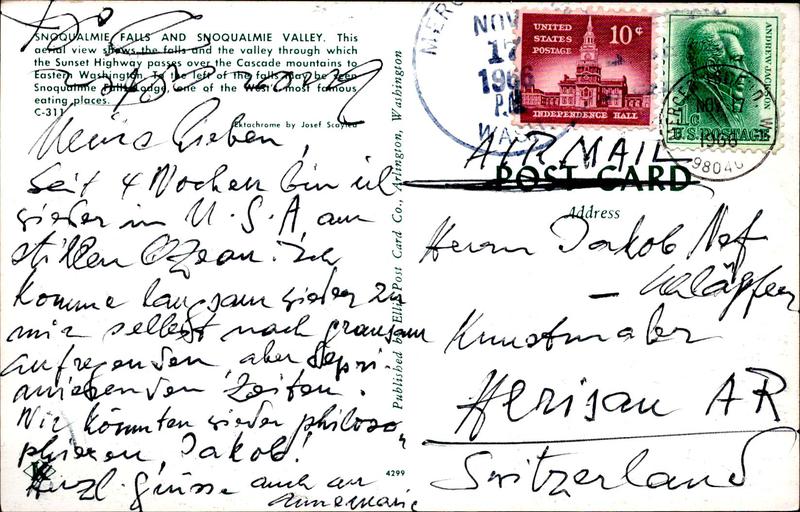 SNOQUALMIE FALLS AND SNOQUALMIE VALLEY. This
aerial view shows the falls and the valley through which
the Sunset Highway passes over the Cascade mountains to
Eastern Washington. To the left of the falls can be seen
Snoqualmie Falls Lodge, one of the West's most famous
eating places.
C-311
Ektachrome by Josef Scaylea
Meine Lieben,
Seit 4 Wochen bin ich
wieder in U.S.A, am
stillen Ozean. Ich
komme langsam wieder zu
mir selbst nach grausam
aufregenden, aber depri-
mierenden Zeiten.
Wir könnten wieder philoso-
phieren, Jakob!
Herzl. Grüsse auch an
Annemarie
Published by Ellis Post Card Co., Arlington, Washington
4299
NOV
17
1966
P.M.
WA
UNITED
STATES
POSTAGE
10¢
INDEPENDENCE HALL
ANDREW JACKSON
1c
U.S. POSTAGE
NOV 17
1966
98040
AIR MAIL
POST CARD
Address
Herrn Jakob Nef
- Schläpfer
Kunstmaler
Herisau AR
Switzerland